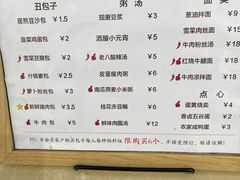 丑包子 粥汤 面类
现熬豆沙包 ¥1.5 现磨豆浆 ¥3 葱油拌面
韭菜鸡蛋包 ¥2 酒酿小元宵 ¥5 雪菜肉丝面
雪菜豆腐包 ¥2 老八酸辣汤 ¥5 牛肉粉丝汤
什锦素包 ¥2 皮蛋瘦肉粥 ¥6 红烧牛腩面
萝卜丝包 ¥2 南瓜燕麦小米粥 ¥6 牛肉凉拌面
新鲜猪肉包 ¥2 桂花赤豆糊 ¥6 点心
牛肉包 ¥3 鲜味肉圆汤 ¥12 蛋黄烧卖
农家咸鸭蛋
PS: 非会员客户购买包子每人每种馅料仅限购买6个，不接受预订，敬请谅解！